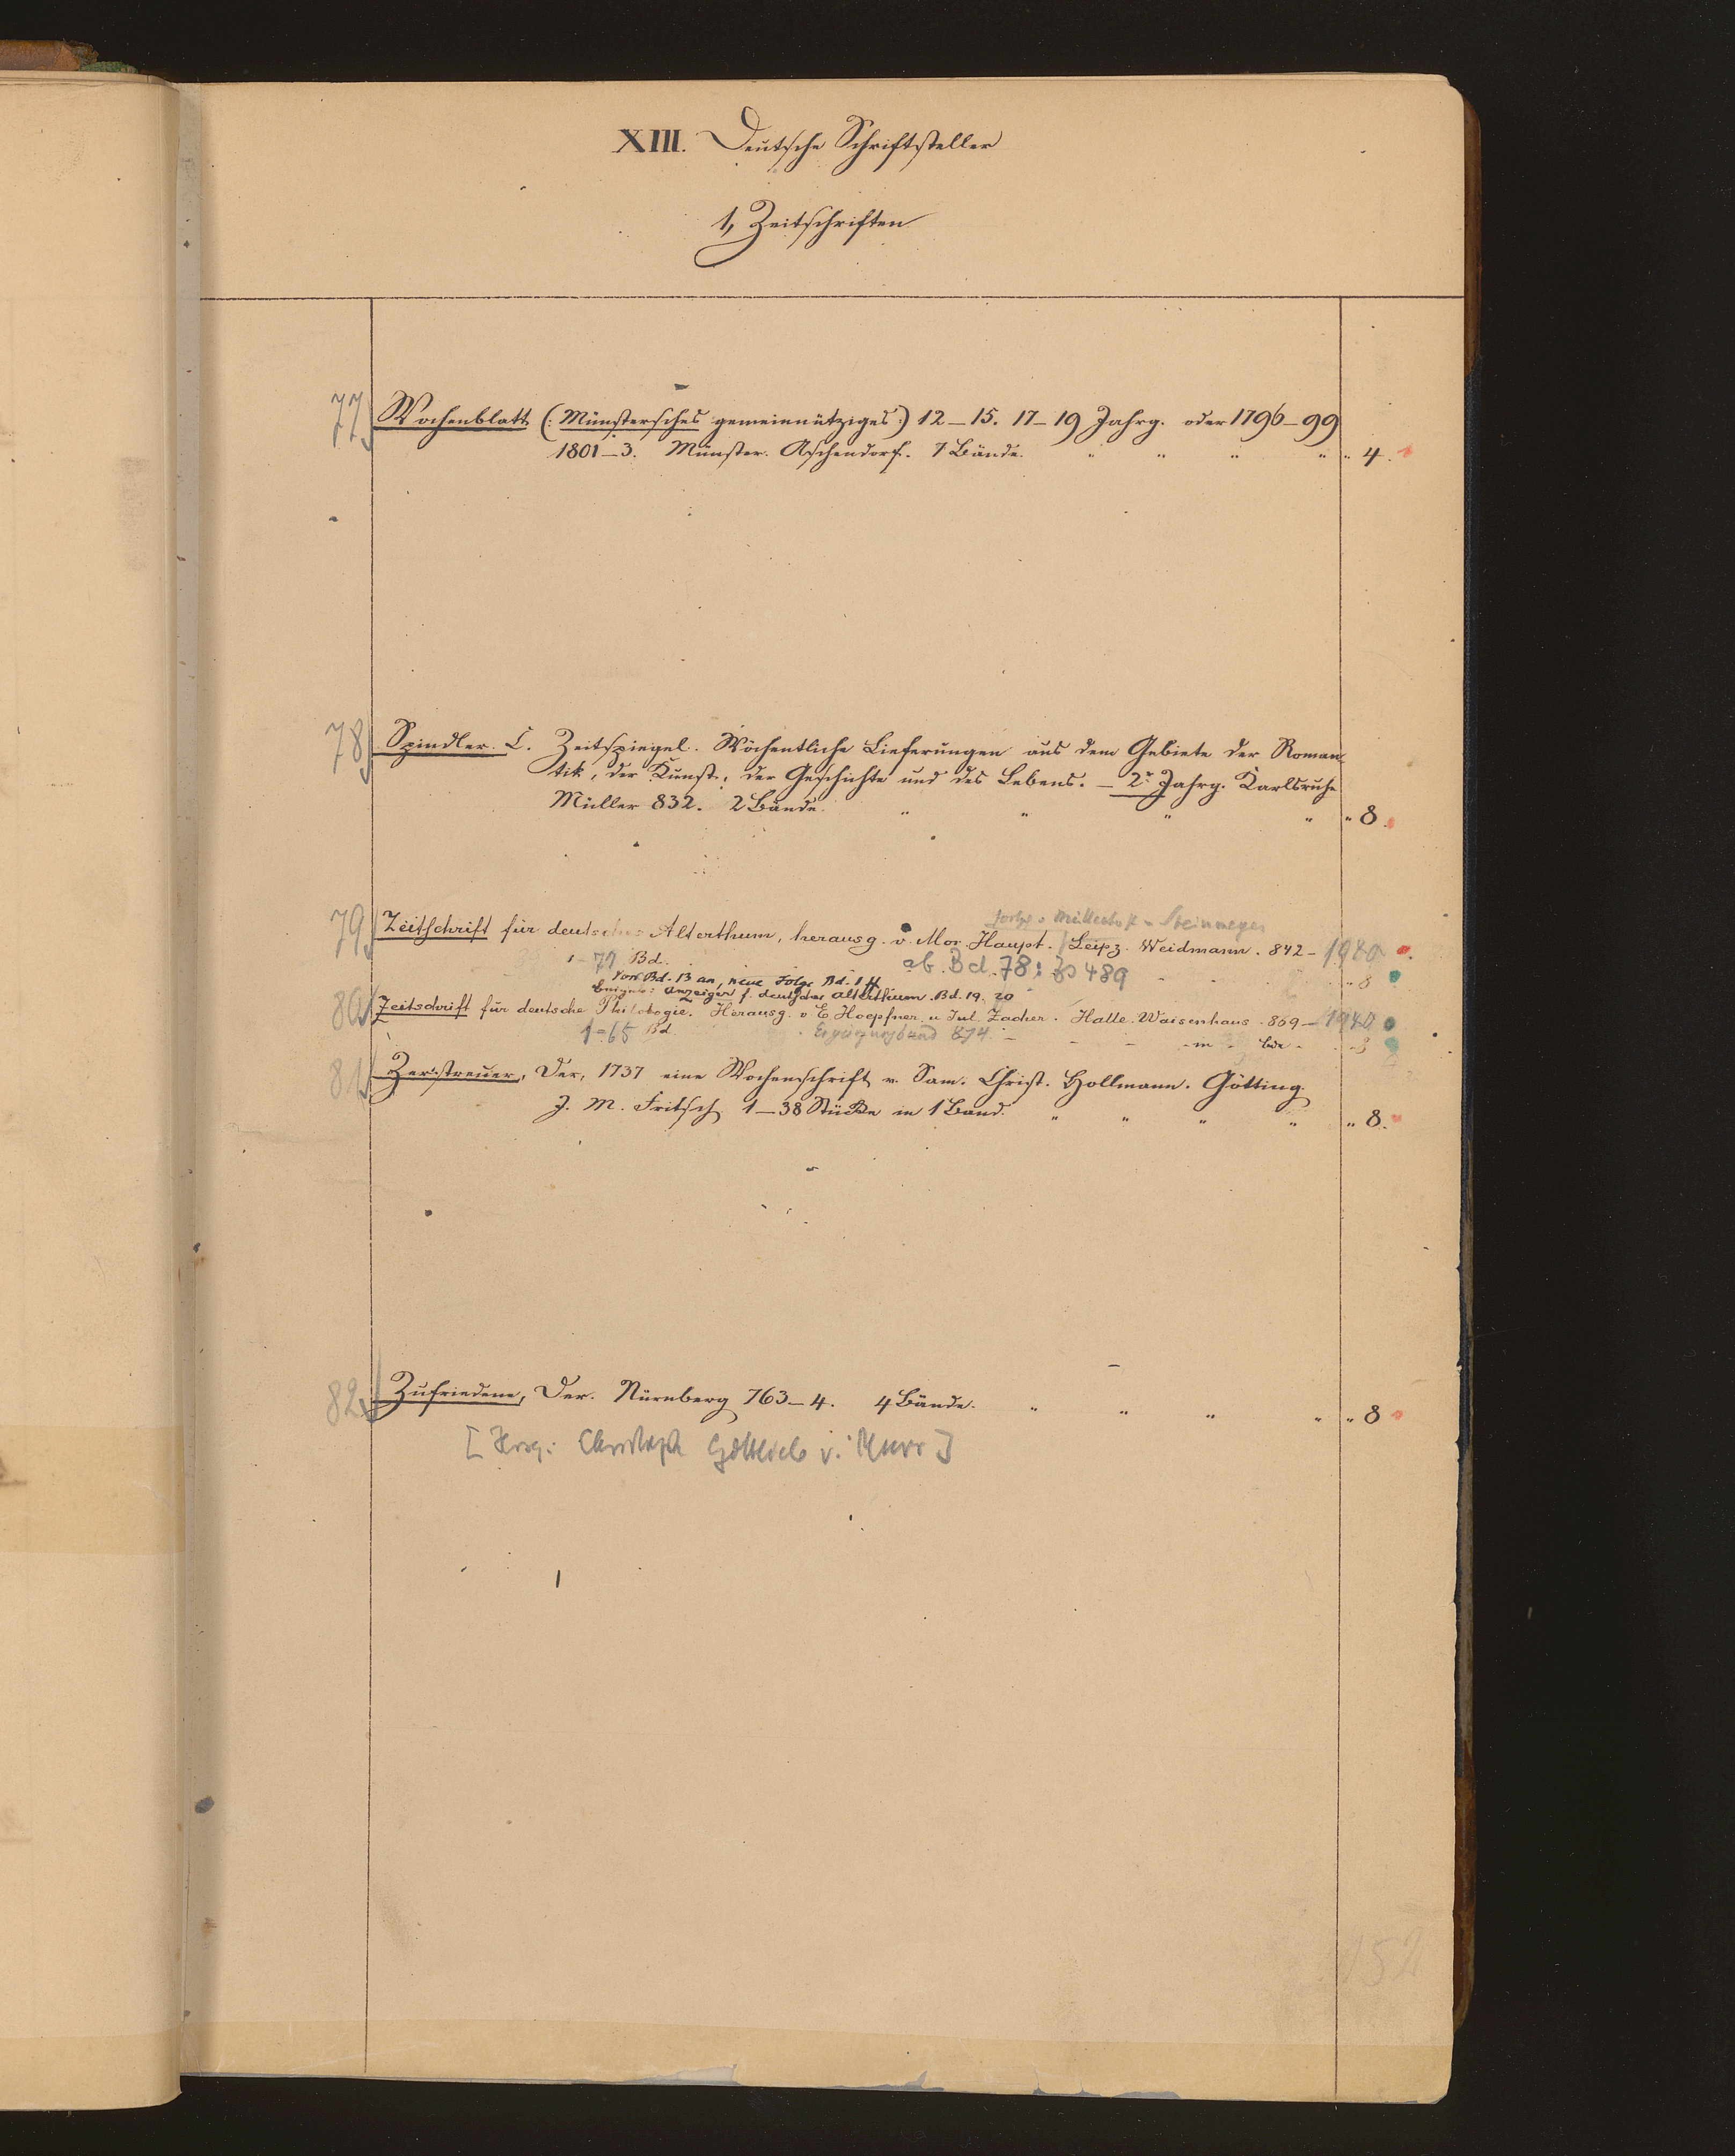 XIII. Deutsche Schriftsteller
1, Zeitschriften
77 Wochenblatt (: Münstersches gemeinnütziges :) 12–15. 17–19 Jahrg. oder 1796–99
1801–3. Münster. Aschendorf. 7 Bände. " " " " " 4.
78 Spindler C. Zeitspiegel. Wöchentliche Lieferungen aus dem Gebiete der Roman-
tik, der Kunst, der Geschichte und des Lebens. – 2r Jahrg. Karlsruhe
Müller 832. 2 Bände. " " " " " 8.
fortges. v. Müllenhoff u. Steinmeyer
79 Zeitschrift für deutsches Alterthum, herausg. v. Mor. Haupt. / Leipz. Weidmann. 842– 1940
1–77 Bd. ab Bd. 78: Zs 489 " 8
Von Bd. 13 an, neue Folge Bd. 1 ff
Beigeb: Anzeiger f. deutsches Alterthum. Bd. 19. 20
80 Zeitschrift für deutsche Philologie. Herausg. v. E. Hoepfner u. Jul. Zacher. Halle. Waisenhaus. 869– 1940
1–65 Bd. Ergänzungsband 874. – – – in – Bde – 8
81 Zerstreuer, Der, 1737 eine Wochenschrift v. Sam. Christ. Hollmann. Götting.
J. M. Fritsch 1–38 Stücke in 1 Band. " " " " " 8.
82. Zufriedene, Der. Nürnberg 763–4. 4 Bände. " " " " " 8
[Hrsg: Christoph Gottlieb v. Murr]
152